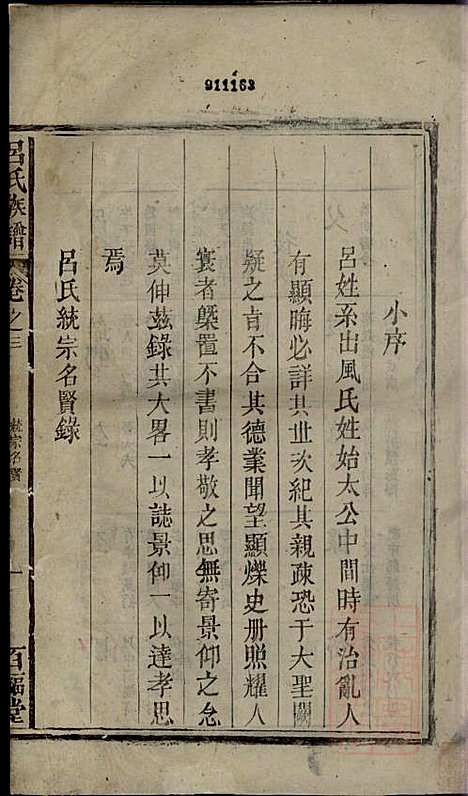 911163
小序
呂姓系出風氏姓始太公中間時有治亂人
有顯晦必詳其世次紀其親疎恐于大聖闕
疑之旨不合其德業聞望顯爍史册照耀人
寰者槩置不書則孝敬之思無寄景仰之念
莫伸茲錄其大畧一以誌景仰一以達孝思
焉
呂氏統宗名賢錄
呂氏族譜 卷之三 統宗名賢 一 百福堂